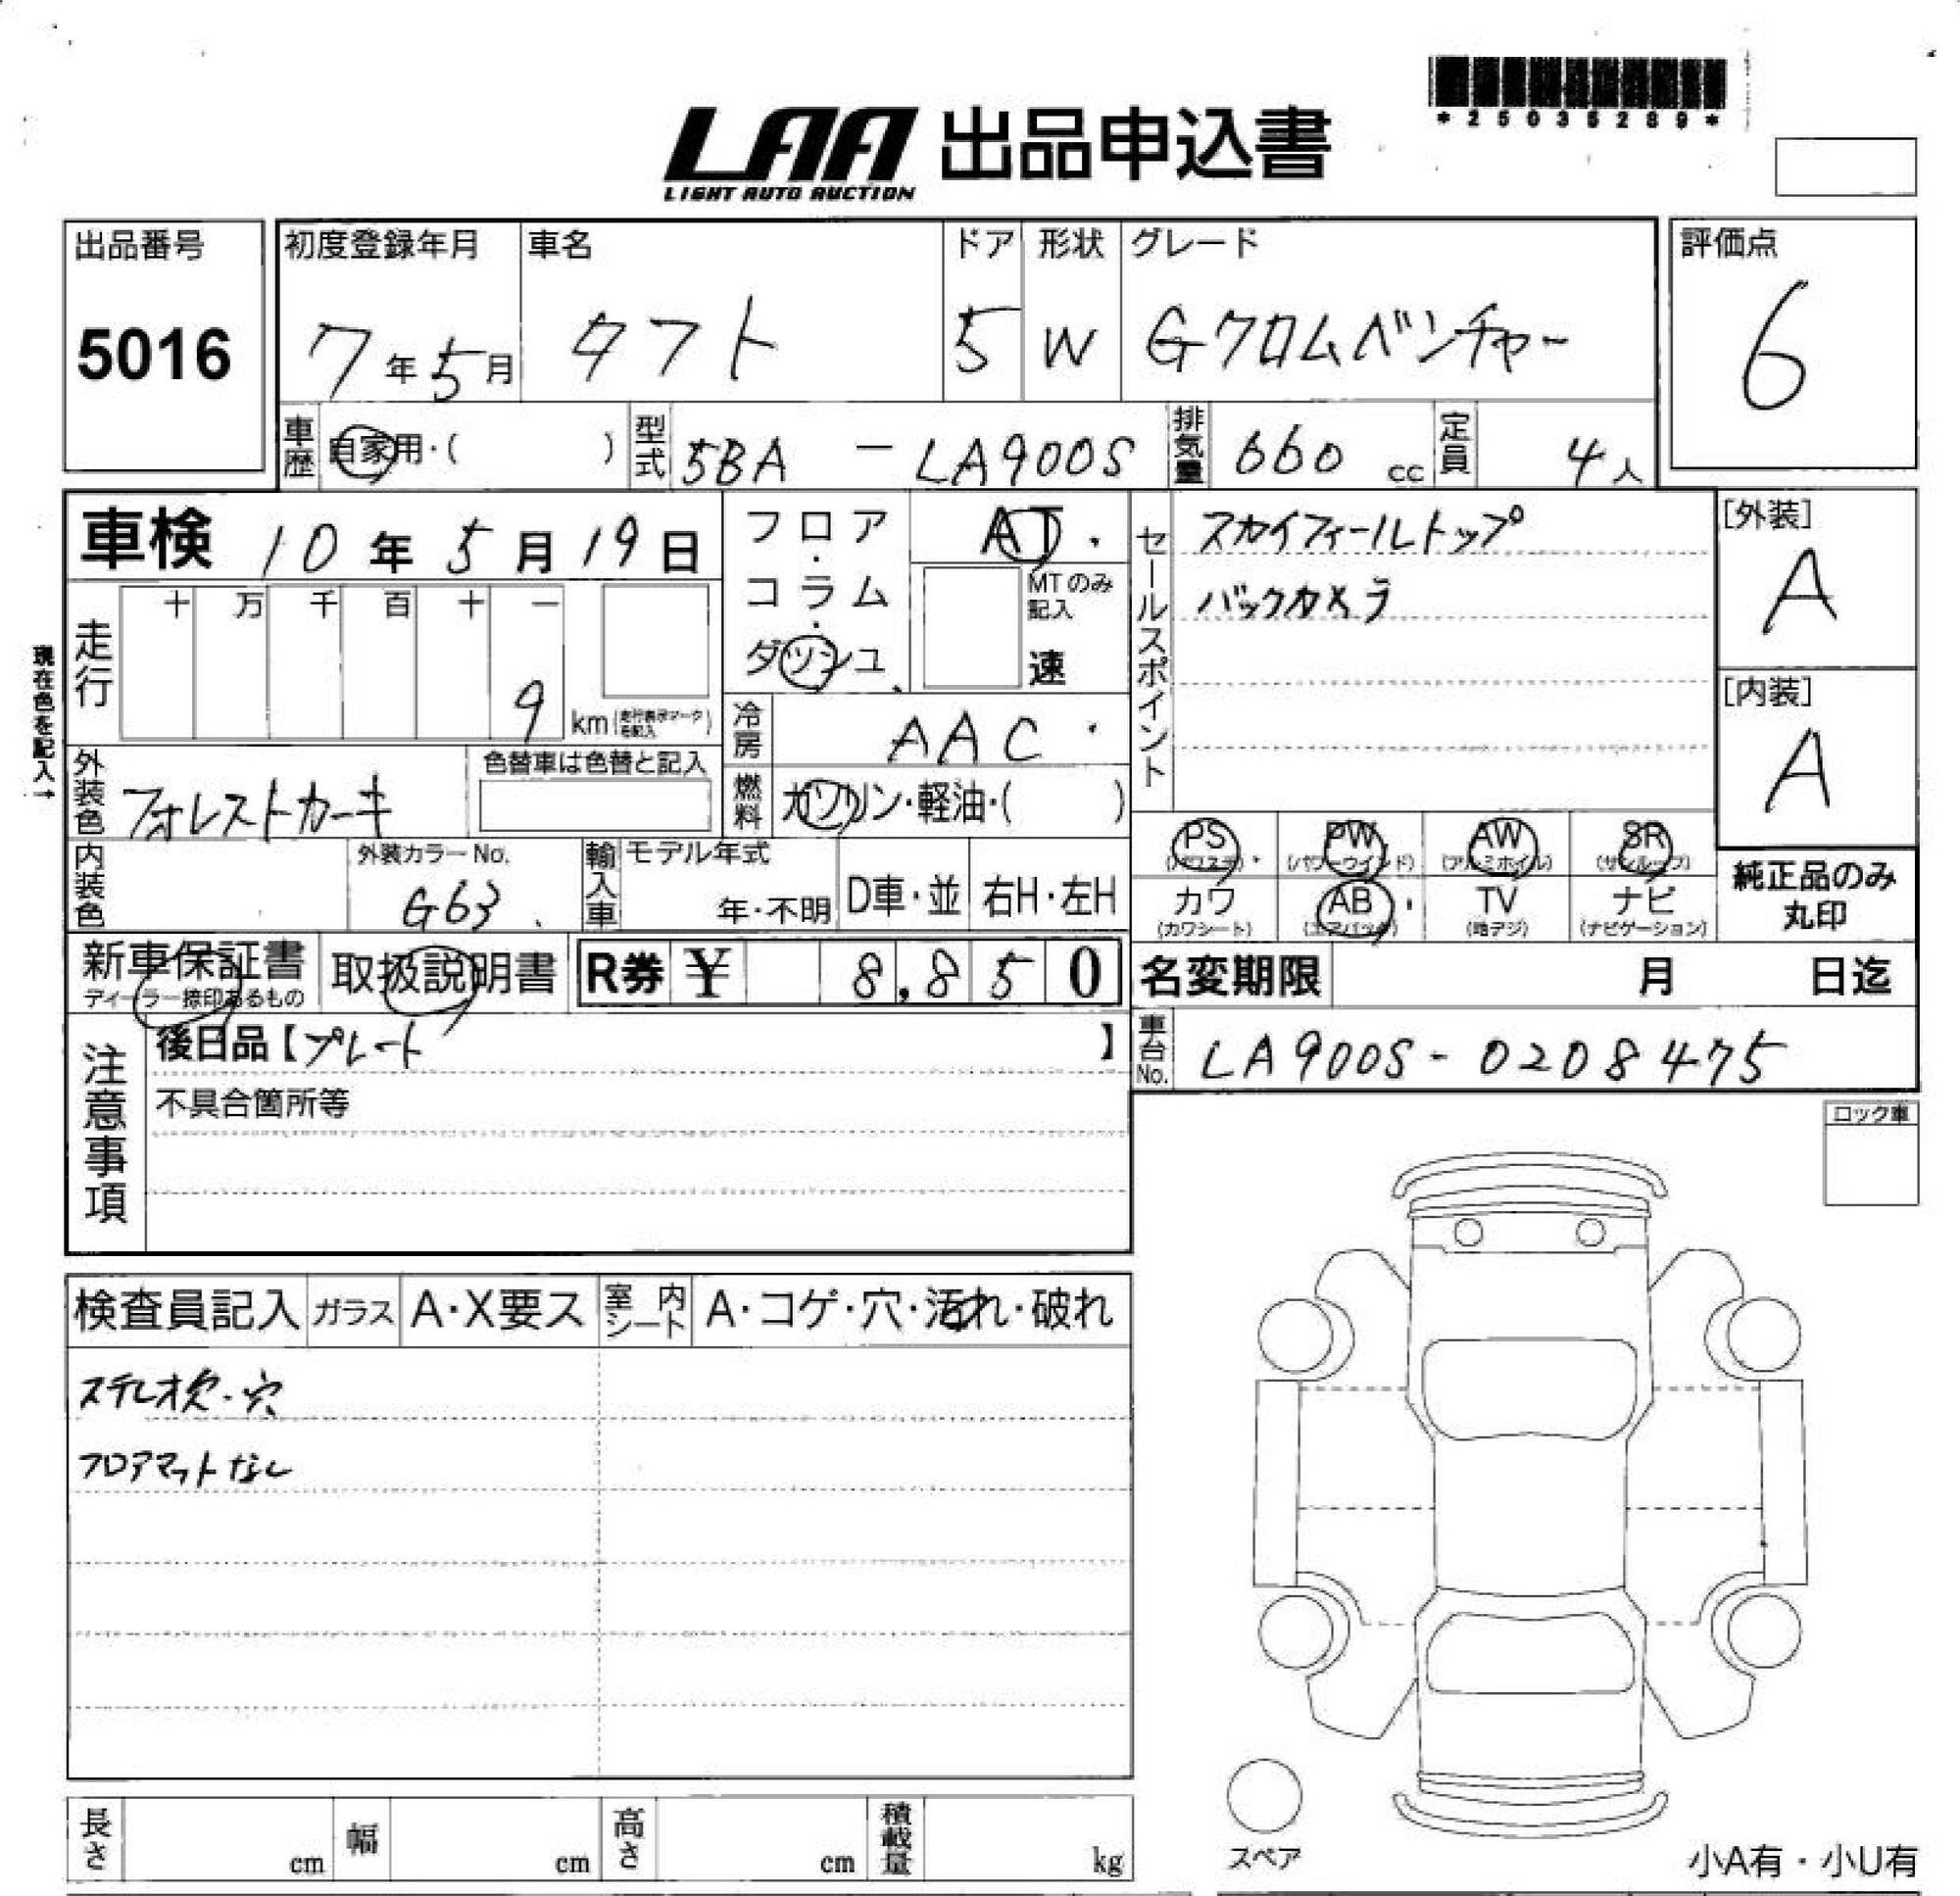 *25036289*
LAA 出品申込書
LIGHT AUTO AUCTION
出品番号
5016
初度登録年月
7年5月
車名
タフト
ドア
5
形状
W
グレード
Gクロムベンチャー
評価点
6
車歴
自家用・( )
型式
5BA - LA900S
排気量
660 cc
定員
4人
車検 10年5月19日
フロア・コラム・ダッシュ
AT
MTのみ記入
速
セールスポイント
スカイフィールトップ
バックカメラ
[外装]
A
[内装]
A
現在色を記入→
走行
十 万 千 百 十 一
9 km(走行表示マークを記入)
冷房
AAC
外装色
フォレストカーキ
色替車は色替と記入
燃料
ガソリン・軽油・( )
PS (パワステ)
PW (パワーウインド)
AW (アルミホイル)
SR (サンルーフ)
カワ (カワシート)
AB (エアバック)
TV (地デジ)
ナビ (ナビゲーション)
純正品のみ
丸印
内装色
外装カラーNo.
G63
輸入車
モデル年式
年・不明
D車・並
右H・左H
新車保証書
ディーラー捺印あるもの
取扱説明書
R券 ¥ 8,850
名変期限 月 日迄
注意事項
後日品【プレート】
不具合箇所等
車台No.
LA900S-0208475
ロック車
検査員記入
ガラス
A・X要ス
室内シート
A・コゲ・穴・汚れ・破れ
ステレオ欠・穴
フロアマットなし
長さ cm
幅 cm
高さ cm
積載量 kg
スペア
小A有・小U有